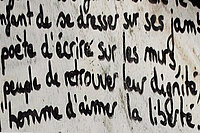 enfant de se dresser sur ses jamb
poète d'écrire sur les murs,
peuple de retrouver leur dignité,
l'homme d'aimer la liberté,